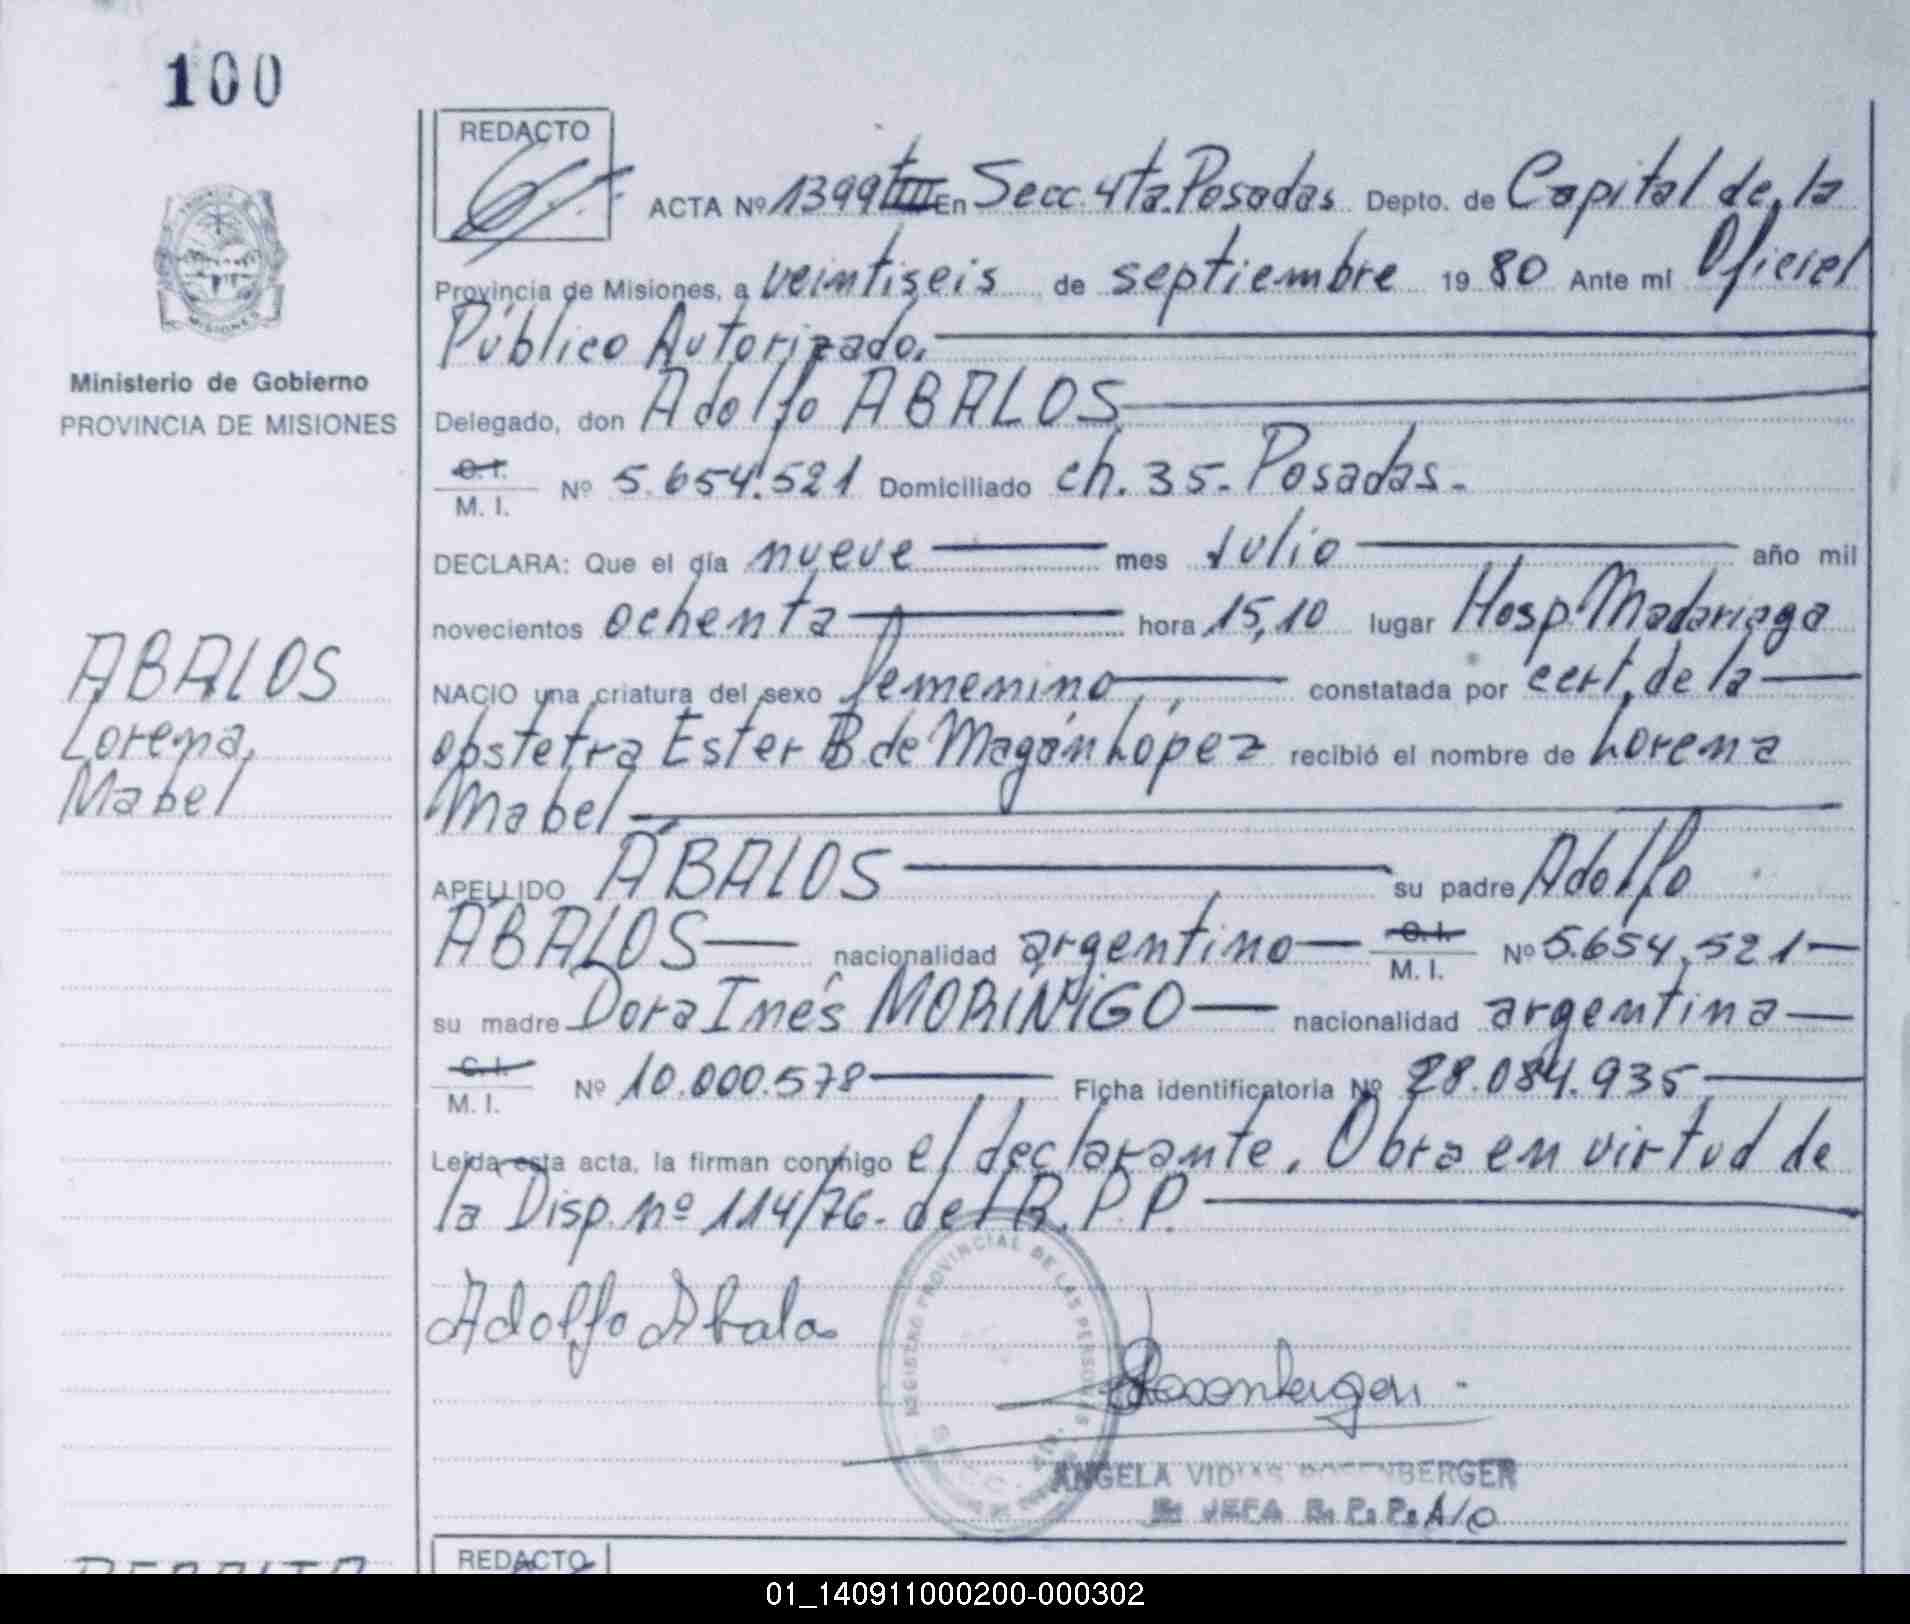 100
REDACTO
ACTA Nº 1399 tIII En Secc. 4ta. Posadas Depto. de Capital de la
Provincia de Misiones, a veintiseis de septiembre 19 80 Ante mí Oficial
Público Autorizado.
Ministerio de Gobierno
PROVINCIA DE MISIONES
MISIONES
Delegado, don Adolfo ABALOS
C. I.
M. I. Nº 5.654.521 Domiciliado ch. 35 - Posadas -
DECLARA: Que el día nueve mes Julio año mil
novecientos ochenta hora 15,10 lugar Hosp. Madariaga
ABALOS
Lorena,
Mabel
NACIO una criatura del sexo femenino constatada por cert. de la
obstetra Ester B. de Magán López recibió el nombre de Lorena
Mabel
APELLIDO ÁBALOS su padre Adolfo
ÁBALOS nacionalidad argentino C. I.
M. I. Nº 5.654.521
su madre Dora Inés MORIÑIGO nacionalidad argentina
C. I.
M. I. Nº 10.000.578 Ficha identificatoria Nº 28.084.935
Leída esta acta, la firman conmigo el declarante. Obra en virtud de
la Disp. nº 114/76 - del R. P. P.
REGISTRO PROVINCIAL DE LAS PERSONAS
Adolfo Abalo
Rosenberger
ANGELA VIDIAS ROSENBERGER
JEFA R. P. P. A/C
REDACTO
01_140911000200-000302